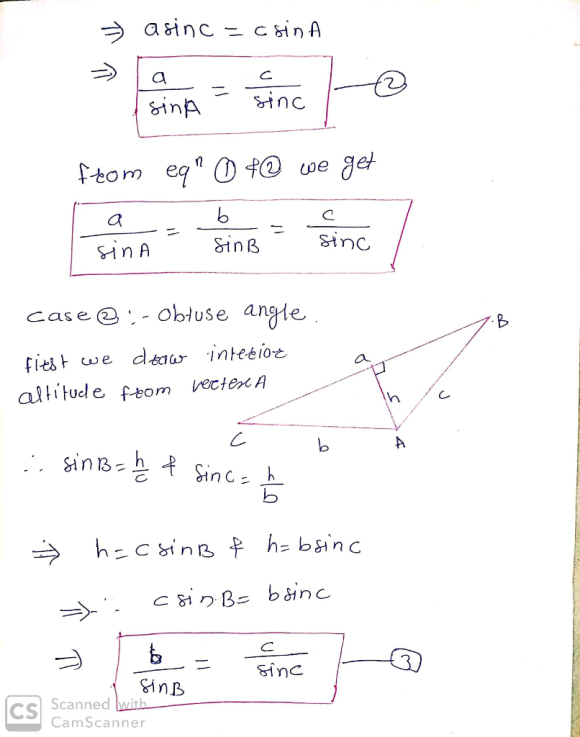 ⇒ a sin C = c sin A
⇒ a/sin A = c/sin C —②
from eqⁿ ① & ② we get
a/sin A = b/sin B = c/sin C
case ② :- Obtuse angle.
first we draw interior
altitude from vertex A
B
a
h
c
C
b
A
∴ sin B = h/c & sin C = h/b
⇒ h = c sin B & h = b sin C
⇒ ∴ c sin B = b sin C
⇒ b/sin B = c/sin C —③
CS Scanned with
CamScanner